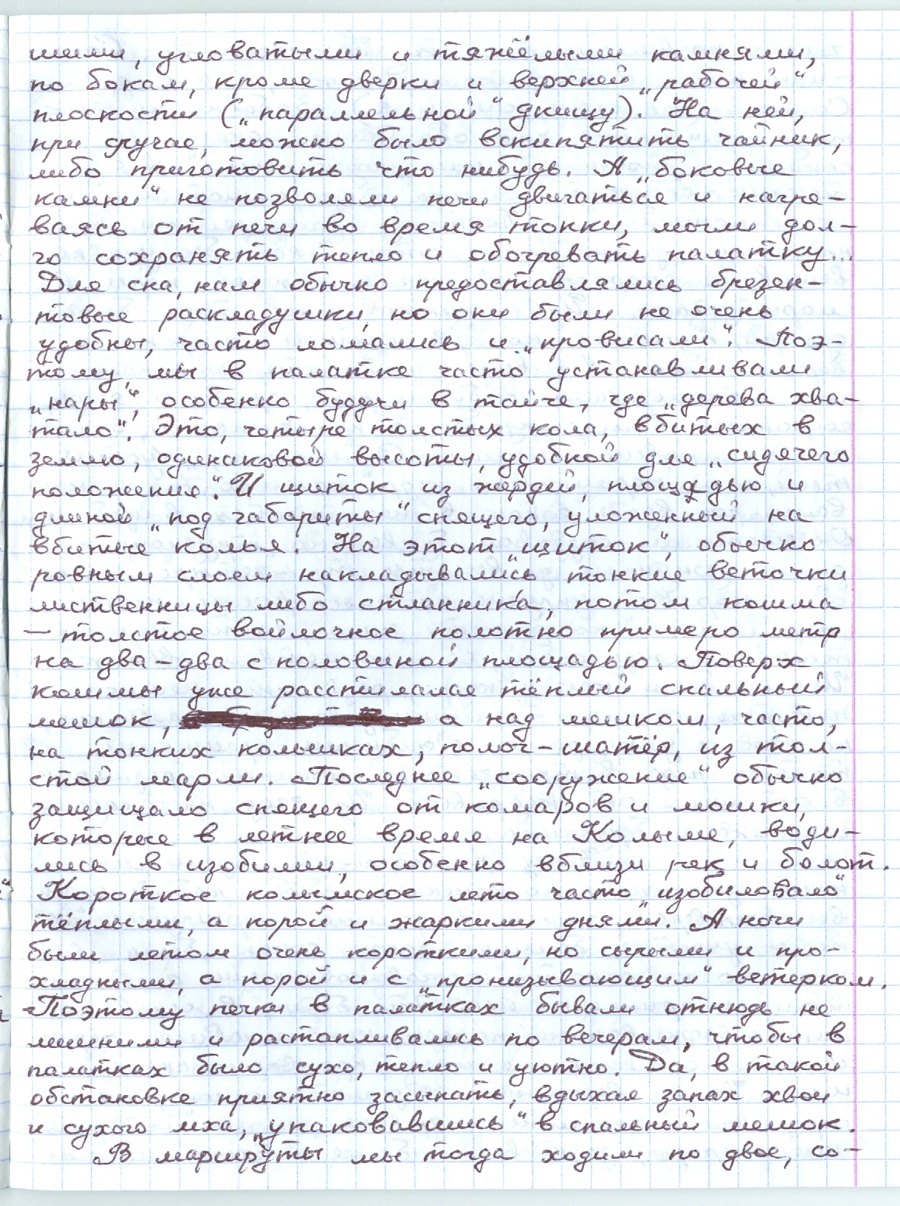 шими, угловатыми и тяжёлыми камнями,
по бокам, кроме дверки и верхней „рабочей“
плоскости („параллельной“ днищу). На ней,
при случае, можно было вскипятить чайник,
либо приготовить что нибудь. А „боковые
камни“ не позволяли печи двигаться и нагре-
ваясь от печи во время топки, могли дол-
го сохранять тепло и обогревать палатку...
Для сна, нам обычно предоставлялись брезен-
товые раскладушки, но они были не очень
удобны, часто ломались и „провисали“. Поэ-
тому, мы в палатке часто устанавливали
„нары“, особенно будучи в тайге, где „дерева хва-
тало“. Это, четыре толстых кола, вбитых в
землю, одинаковой высоты, удобной для „сидячего
положения“. И щиток из жердей, площадью и
длиной „под габариты“ спящего, уложенный на
вбитые колья. На этот „щиток“, обычно
ровным слоем накладывались тонкие веточки
лиственницы либо стланника, потом кошма
— толстое войлочное полотно примеро метр
на два-два с половиной площадью. Поверх
кошмы уже расстилался тёплый спальный
мешок, а над мешком, часто,
на тонких колышках, полог-шатёр, из тол-
стой марли. Последнее „сооружение“ обычно
защищало спящего от комаров и мошки,
которые в летнее время на Колыме, води-
лись в изобилии, особенно вблизи рек и болот.
Короткое колымское лето часто „изобиловало“
тёплыми, а порой и жаркими днями. А ночи
были летом очень короткими, но сырыми и про-
хладными, а порой и с „пронизывающим“ ветерком.
Поэтому печки в палатках бывали отнюдь не
лишними и растапливались по вечерам, чтобы в
палатках было сухо, тепло и уютно. Да, в такой
обстановке приятно засыпать, вдыхая запах хвои
и сухого мха, „упаковавшись“ в спальный мешок.
В маршруты мы тогда ходили по двое, со-